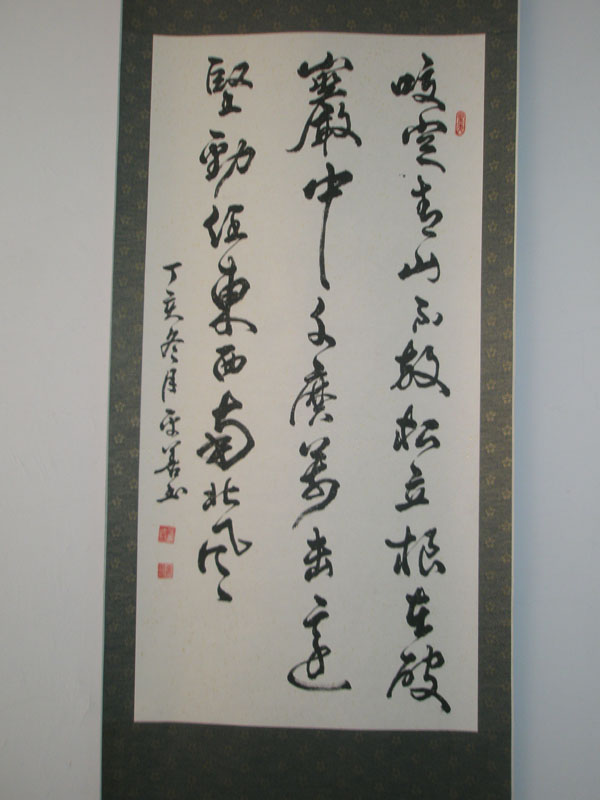 咬定青山不放松立根在破
巖中千磨萬击還
堅勁任東西南北风
丁亥冬月平善书